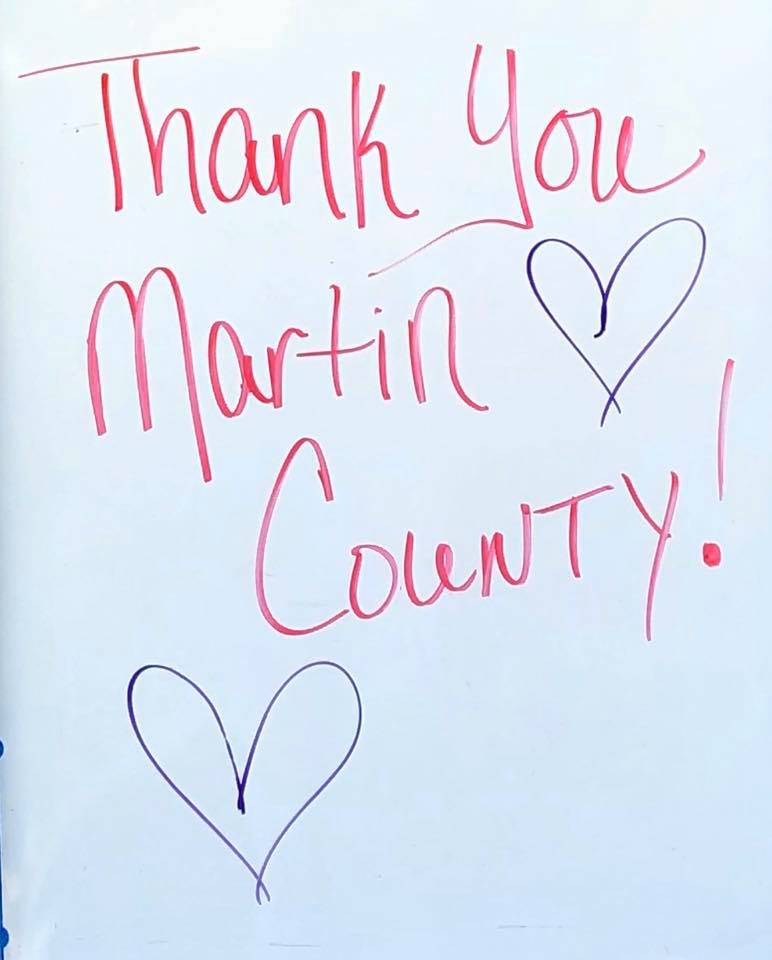 Thank You
Martin
County!